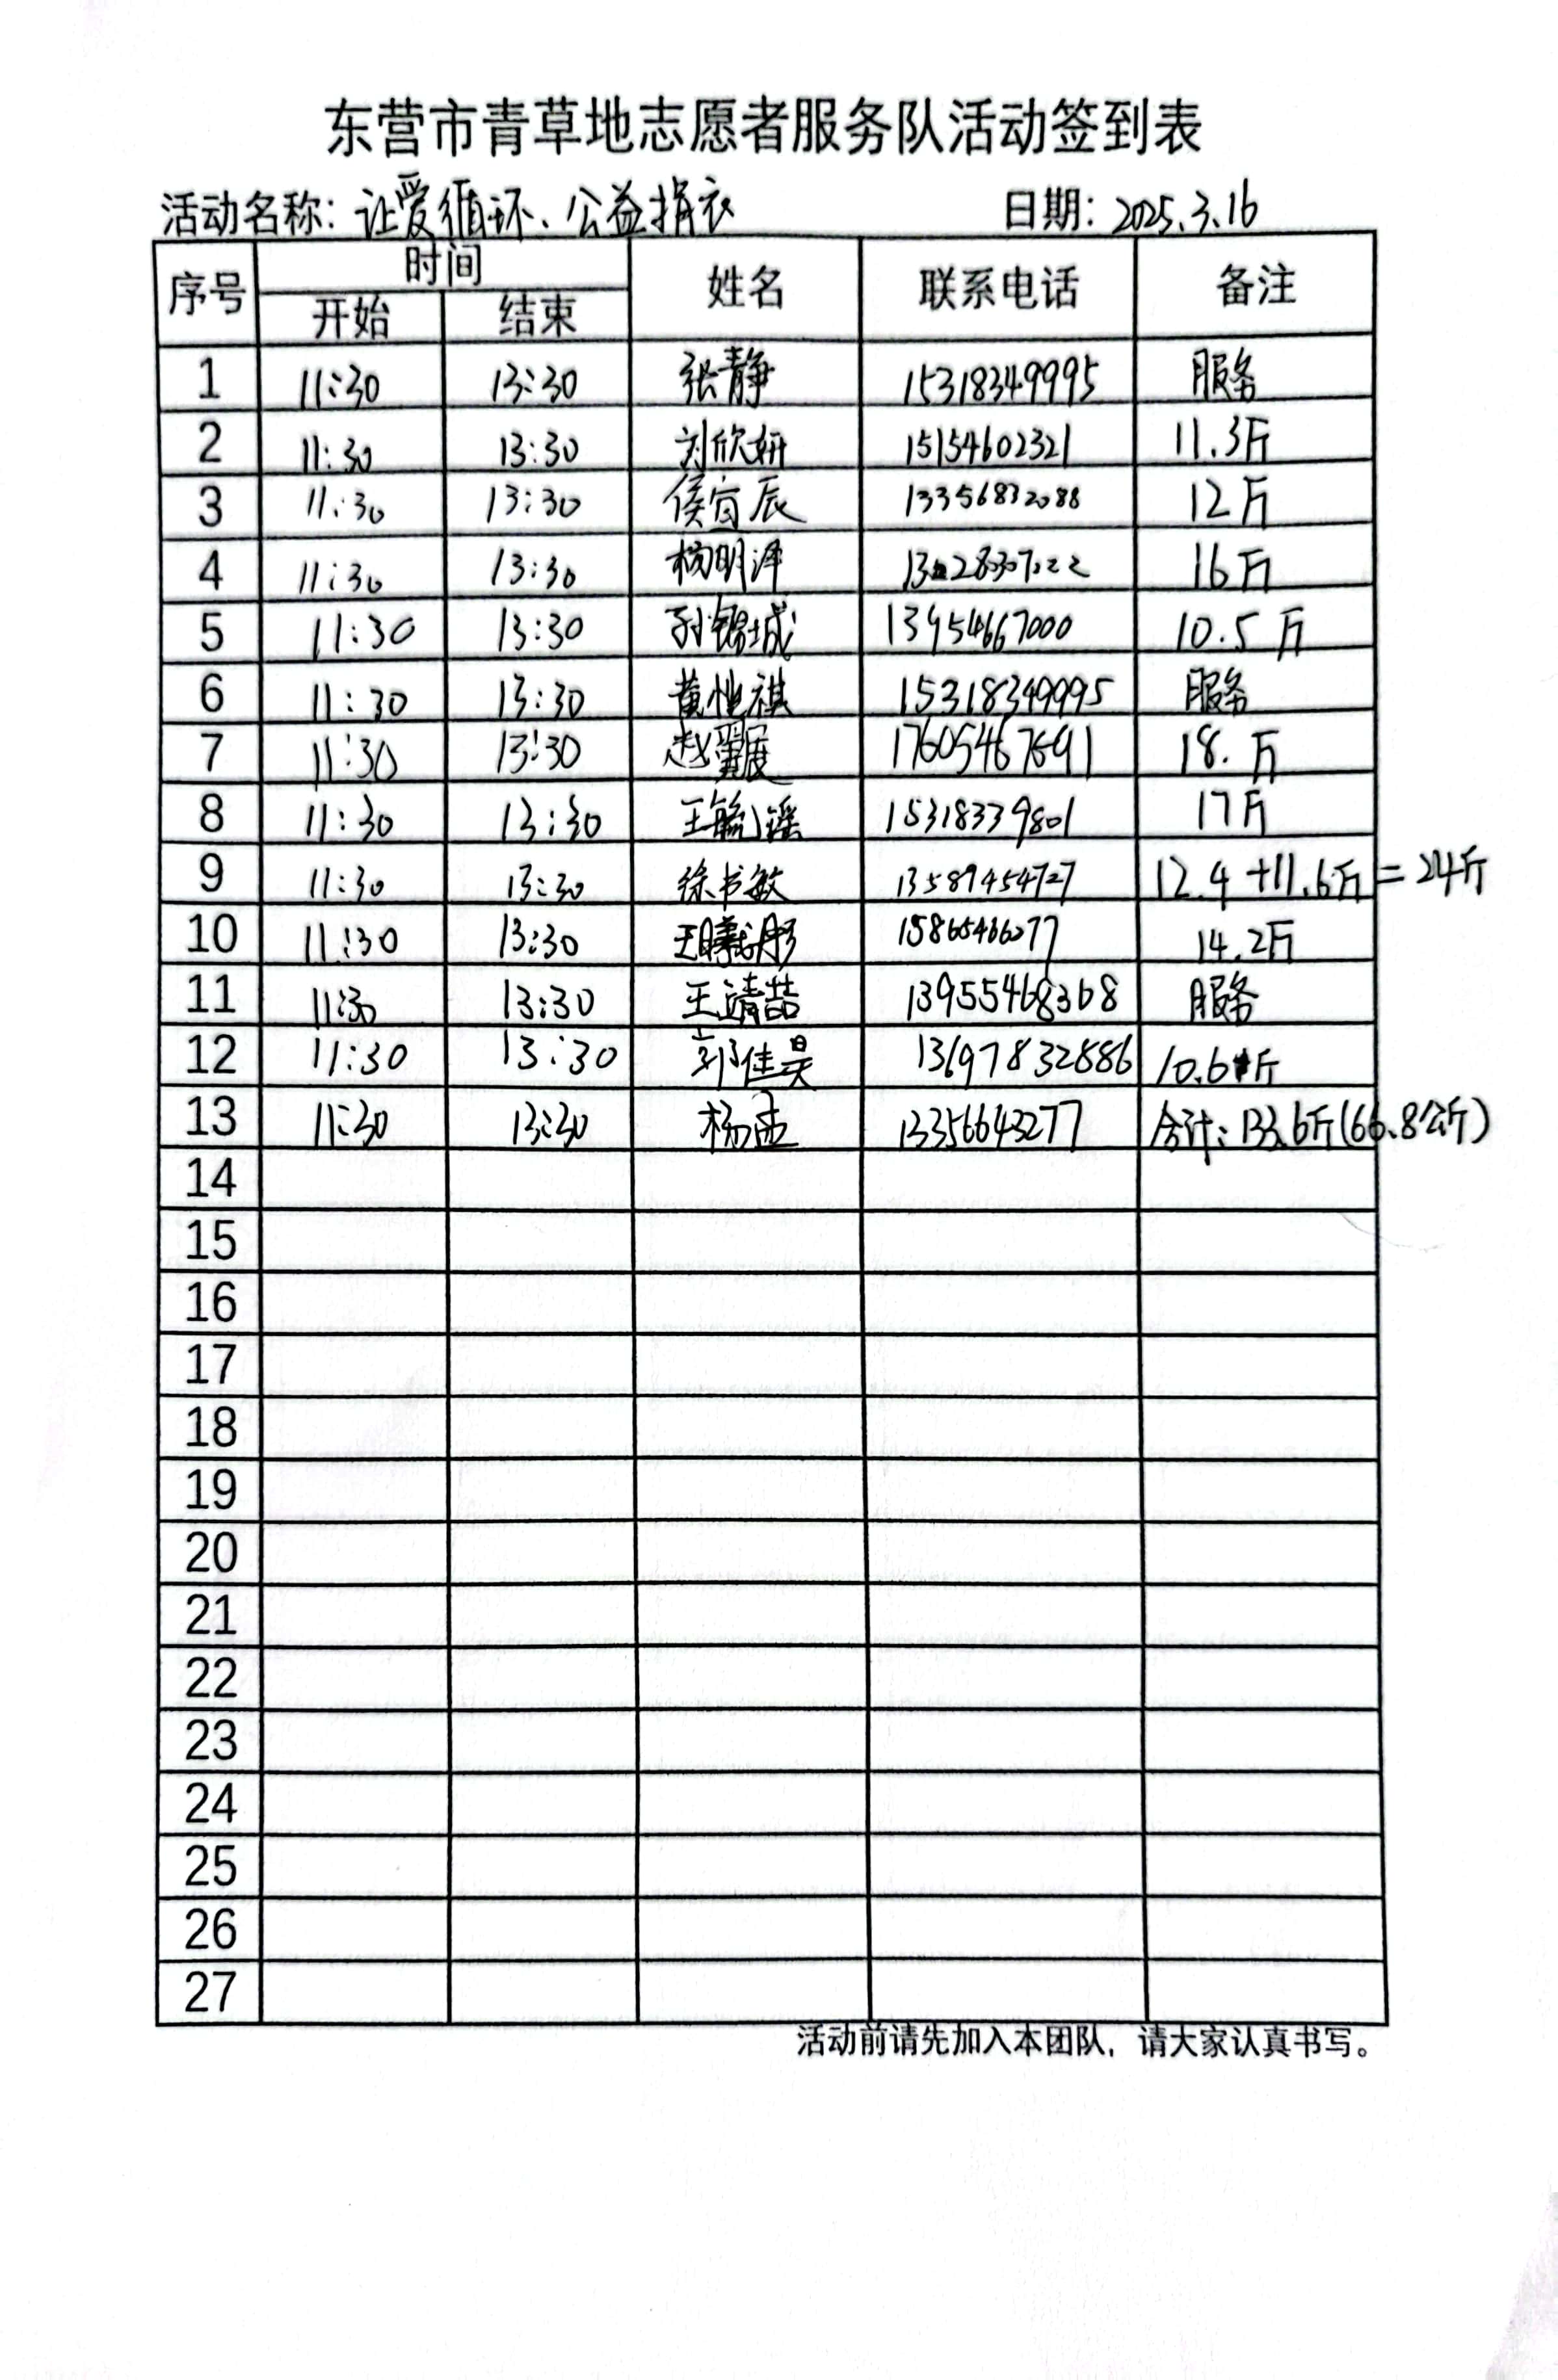 东营市青草地志愿者服务队活动签到表
活动名称：让爱循环、公益捐衣 日期：2025.3.16
序号 时间 姓名 联系电话 备注
开始 结束
1 11:30 13:30 张静 15318349995 服务
2 11:30 13:30 刘欣妍 15154602321 11.3斤
3 11:30 13:30 侯宜辰 13356832088 12斤
4 11:30 13:30 杨明泽 16斤
5 11:30 13:30 孙锡城 13954667000 10.5斤
6 11:30 13:30 黄惟祺 15318349995 服务
7 11:30 13:30 赵翼展 18.斤
8 11:30 13:30 王毓瑶 15318339801 17斤
9 11:30 13:30 徐书敏 13589454727 12.4+11.6斤=24斤
10 11:30 13:30 王曦彤 15865466077 14.2斤
11 11:30 13:30 王靖喆 13955468368 服务
12 11:30 13:30 郭佳昊 13697832886 10.6斤
13 11:30 13:30 杨 13356643277 合计：133.6斤(66.8公斤)
14
15
16
17
18
19
20
21
22
23
24
25
26
27
活动前请先加入本团队，请大家认真书写。